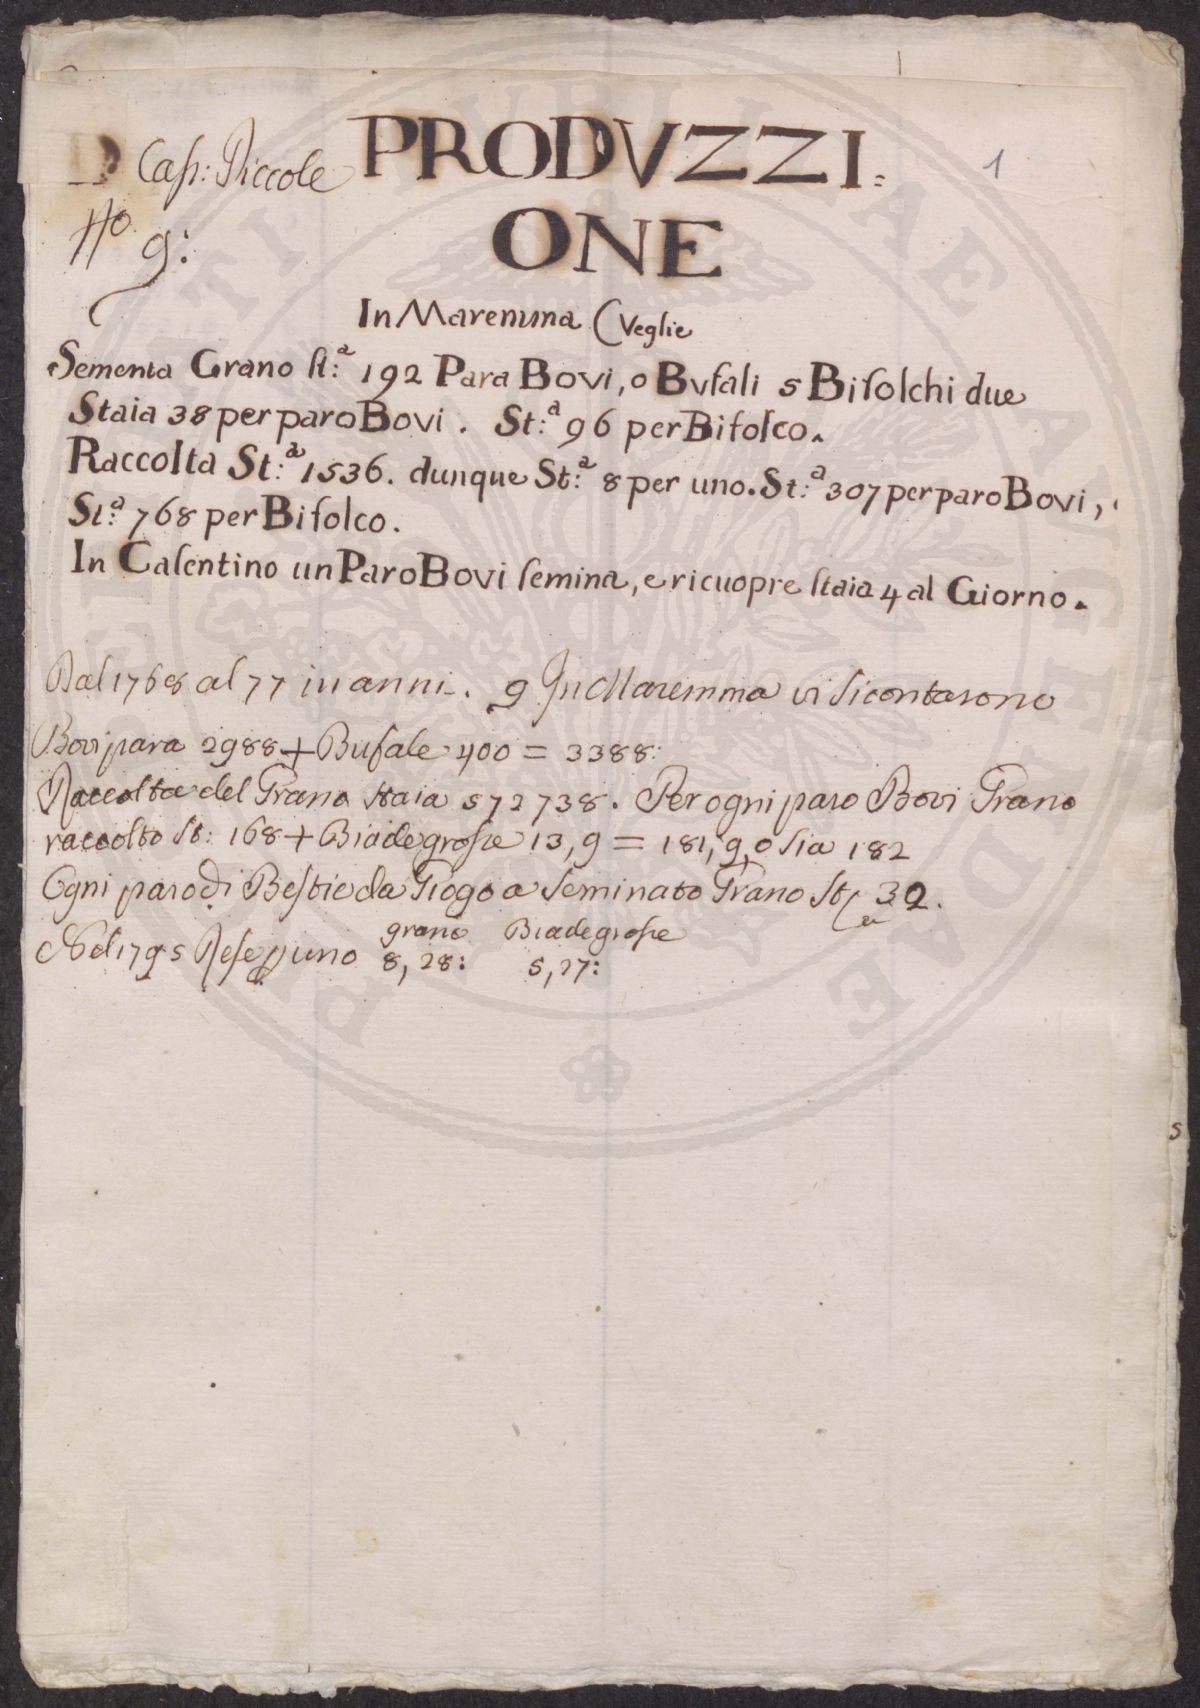 PRODVZZI= 1
D Cass: Piccole
ONE
No 9:
In Maremma (Veglie
Sementa Grano st:a 192 Para Bovi, o Bufali 5 Bifolchi due
Staia 38 per paro Bovi. St:a 96 per Bifolco.
Raccolta St:a 1536. dunque St:a 8 per uno. St:a 307 per paro Bovi,
St:a 768 per Bifolco.
In Casentino un Paro Bovi semina, e ricuopre staia 4 al Giorno.
Dal 1768 al 77 in anni. 9 In Maremma vi si contarono
Bovi para 2988 + Bufale 400 = 3388:
Raccolta del Grano staia 572738. Per ogni paro Bovi Grano
raccolto St: 168 + Biade grosse 13,9 = 181,9, o sia 182
Ogni paro di Bestie da Giogo a Seminato Grano St:a 32.
Nel 1795 Rese p uno grano Biade grosse
8,28: 5,27:
5